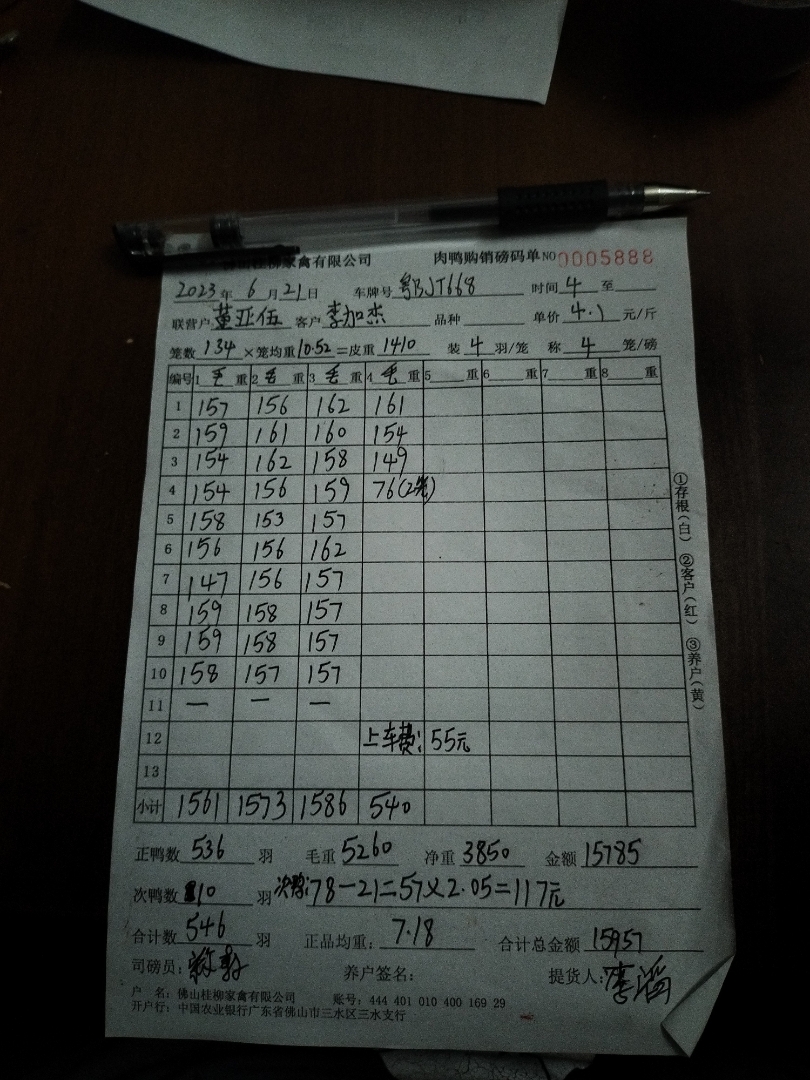 佛山桂柳家禽有限公司 肉鸭购销磅码单 NO 0005888
2023年 6月21日 车牌号 粤BJT668 时间 4 至
联营户 董亚伍 客户 李加杰 品种 单价 4.1 元/斤
笼数 134 ×笼均重 10.52 =皮重 1410 装 4 羽/笼 称 4 笼/磅
编号 1 毛 重 2 毛 重 3 毛 重 4 毛 重 5 重 6 重 7 重 8 重
1 157 156 162 161
2 159 161 160 154
3 154 162 158 149
4 154 156 159 76(2笼)
5 158 153 157
6 156 156 162
7 147 156 157
8 159 158 157
9 159 158 157
10 158 157 157
11 — — —
12 上车费: 55元
13
小计 1561 1573 1586 540
正鸭数 536 羽 毛重 5260 净重 3850 金额 15785
次鸭数 10 羽 次鸭: 78-21=57×2.05=117元
合计数 546 羽 正品均重: 7.18 合计总金额 15957
司磅员: 养户签名: 提货人: 李滔
户 名: 佛山桂柳家禽有限公司 账号: 444 401 010 400 169 29
开户行: 中国农业银行广东省佛山市三水区三水支行
①存根(白) ②客户(红) ③养户(黄)